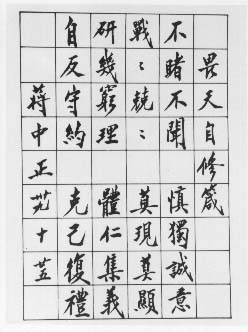 畏天自修箴
不睹不聞 慎獨誠意
戰〻兢〻 莫現莫顯
研幾窮理 體仁集義
自反守約 克己復禮
蔣中正 十